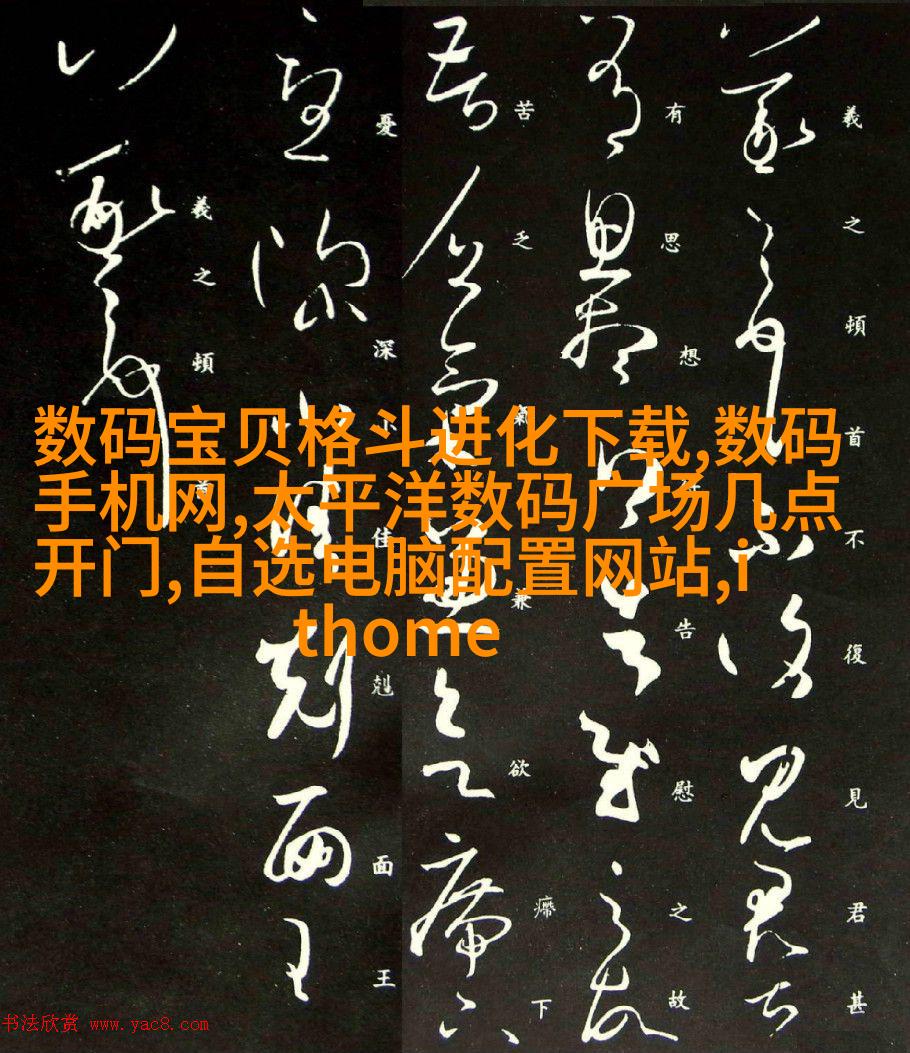 羲之頓首不復見君甚
有思想告慰之故
苦乏氣兼欲㿃下
憂深小佳剋面王
羲之頓首
数码宝贝格斗进化下载,数码
手机网,太平洋数码广场几点
开门,自选电脑配置网站,i
thome
书法欣赏 www.yac8.com